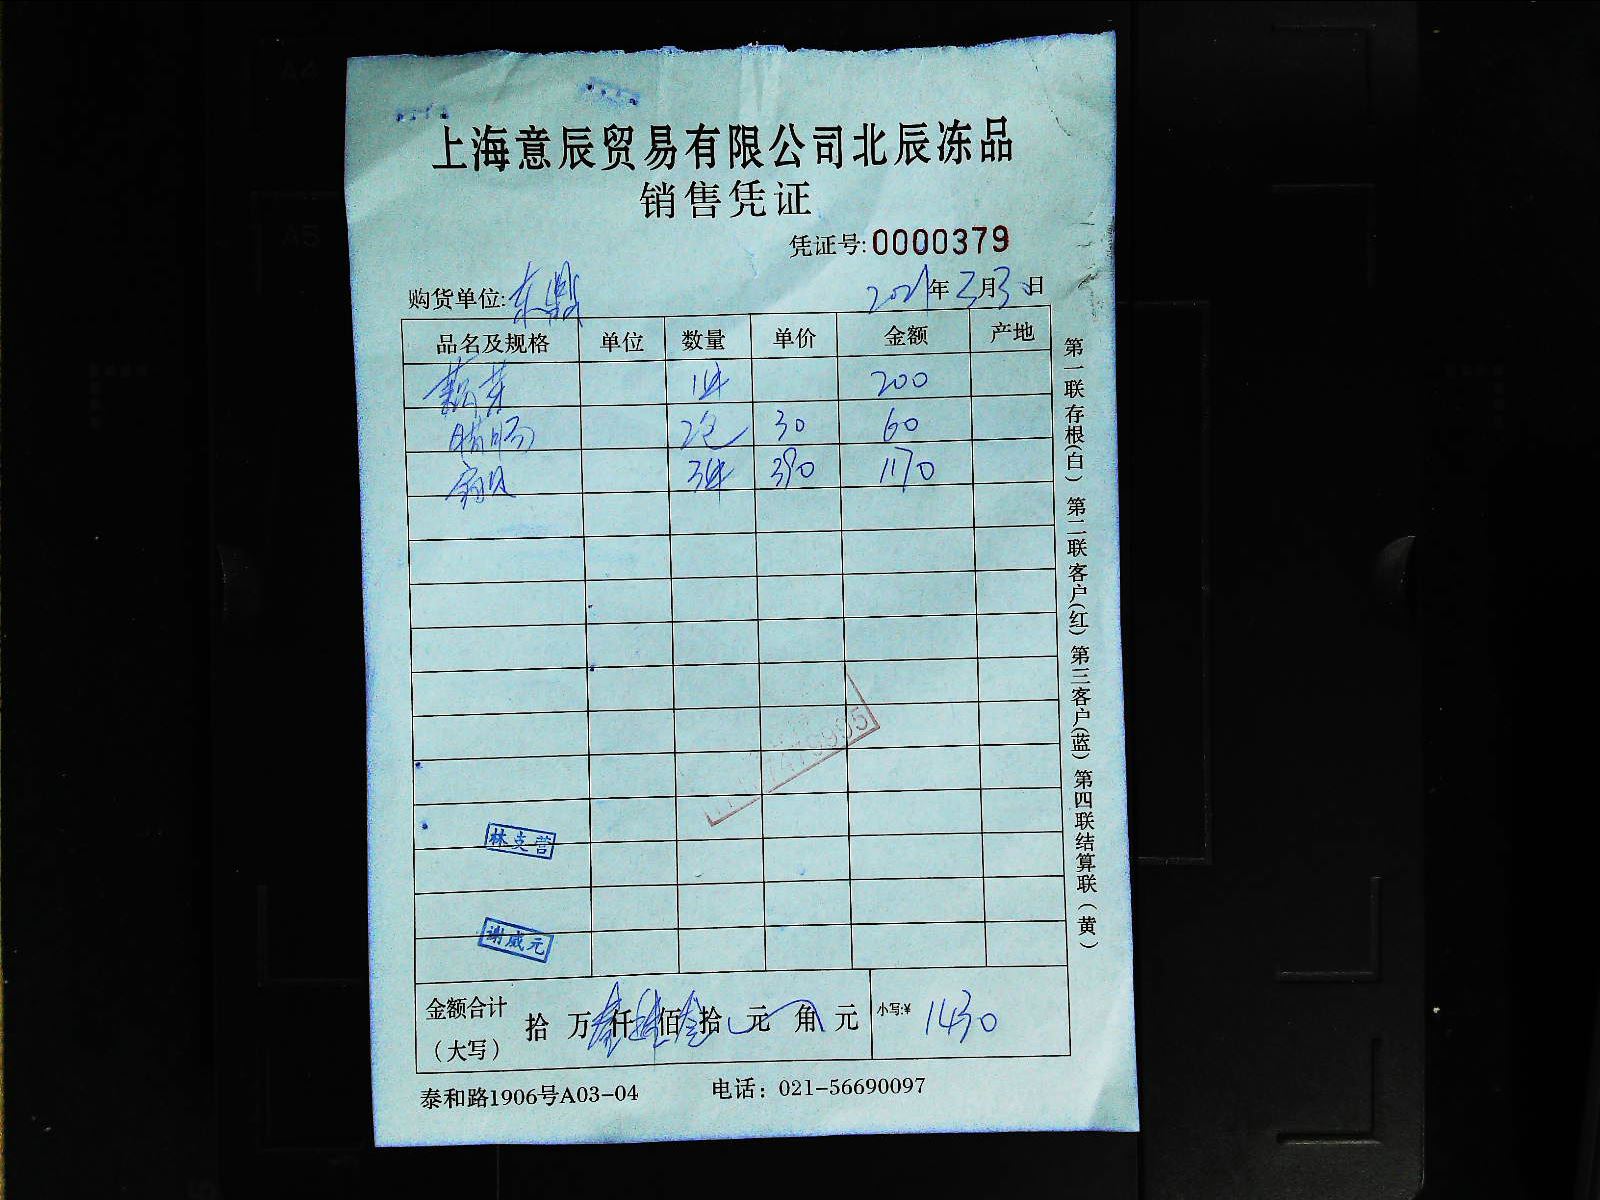 上海意辰贸易有限公司北辰冻品
销售凭证
凭证号:0000379
购货单位:东鼎 2021年3月3日
品名及规格 单位 数量 单价 金额 产地
1件 200
腊肠 2包 30 60
扇贝 3件 390 1170
林支营
谢成元
金额合计（大写） 拾 万壹仟肆佰叁拾元 角 元 小写:¥ 1430
泰和路1906号A03-04 电话：021-56690097
第一联存根(白) 第二联客户(红) 第三客户(蓝) 第四联结算联（黄）